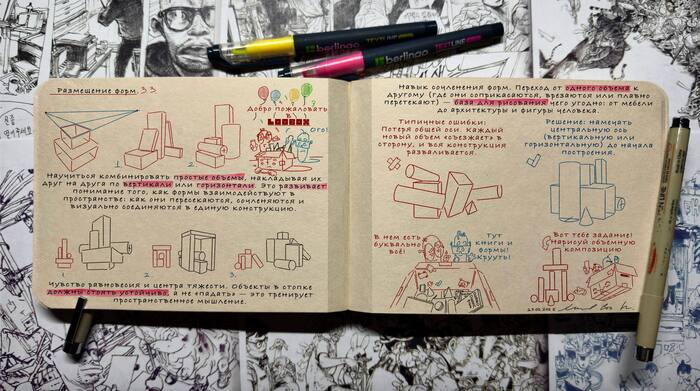 berlingo TEXTLINE
berlingo TEXTLINE
Размещение форм.33
Добро пожаловать
в
LOOBOX
Ого!
1
2
Научиться комбинировать простые объемы, накладывая их
друг на друга по вертикали или горизонтали. Это развивает
понимание того, как формы взаимодействуют в
пространстве: как они пересекаются, сочленяются и
визуально соединяются в единую конструкцию.
1
2.
3.
Чувство равновесия и центра тяжести. Объекты в стопке
должны стоять устойчиво, а не «падать» — это тренирует
пространственное мышление.
Навык сочленения форм. Переход от одного объема к
другому (где они соприкасаются, врезаются или плавно
перетекают) — база для рисования чего угодно: от мебели
до архитектуры и фигуры человека.
Типичные ошибки:
Потеря общей оси. Каждый
новый объем «съезжает» в
сторону, и вся конструкция
разваливается.
Решение: намечать
центральную ось
(вертикальную или
горизонтальную) до начала
построения.
В нем есть
буквально
всё!
Тут
книги и
формы!
Круть!
Вот тебе задание!
Нарисуй объемную
композицию